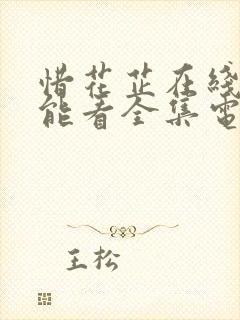 惜花芷在綫
能看全集電
王松